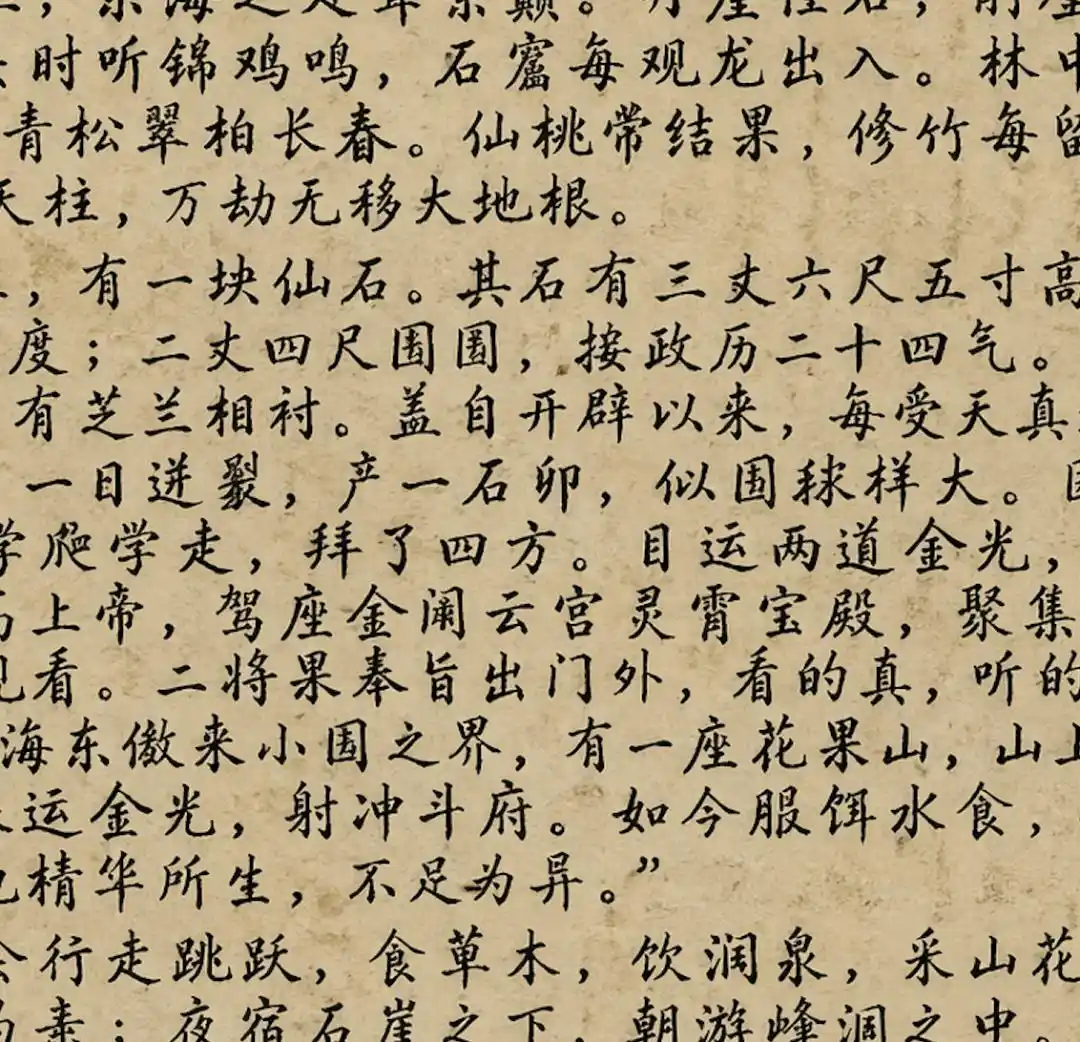 东海之处耸崇巅。丹崖怪石，削
时听锦鸡鸣，石窟每观龙出入。林中
青松翠柏长春。仙桃常结果，修竹每留
天柱，万劫无移大地根。
，有一块仙石。其石有三丈六尺五寸高
度；二丈四尺围圆，按政历二十四气。
有芝兰相衬。盖自开辟以来，每受天真
一日迸裂，产一石卵，似圆球样大。
学爬学走，拜了四方。目运两道金光，
上帝，驾座金阙云宫灵霄宝殿，聚集
看。二将果奉旨出门外，看的真，听的
海东傲来小国之界，有一座花果山，山上
运金光，射冲斗府。如今服饵水食，
精华所生，不足为异。”
会行走跳跃，食草木，饮涧泉，采山花
；夜宿石崖之下，朝游峰洞之中。